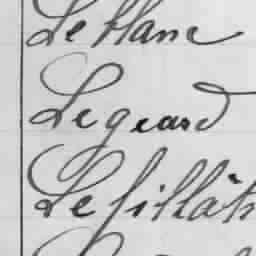 Leblanc
Legeard
Lefillâtr